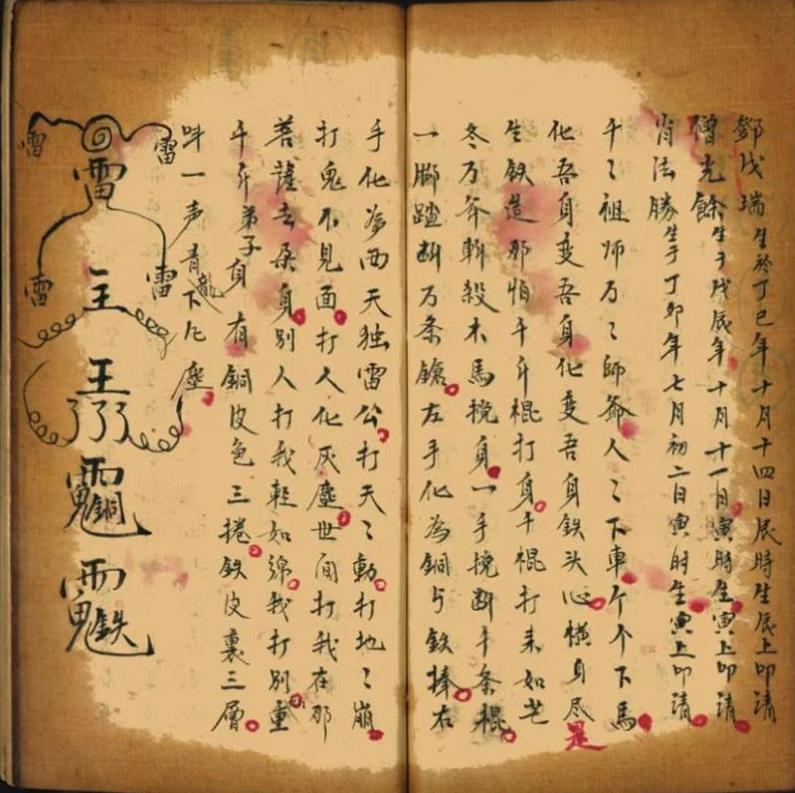 鄧戊瑞生於丁巳年十月十四日辰時生辰上叩請
僧光餘生于戊辰年十月十一日寅時生寅上叩請
肖法勝生于丁卯年七月初二日寅時生寅上叩請
千〻祖师万〻師爺人〻下車个个下馬
化吾身变吾身化变吾身鉄头心橫身尽是
生鉄造那怕千斤棍打身千棍打来如芒
冬万斧斬殺木馬挠身一手挽断千条棍
一脚踏断万条鎗左手化為銅与鉄捧右
手化為西天独雷公打天〻動打地〻崩
打鬼不見面打人化灰塵世间打我在那
菩薩去朶身别人打我軽如綿我打别重
千斤弟子身有銅皮色三捲鉄皮裏三層
吽一声青龍下凡塵
雷 雷
雷
雷 雷